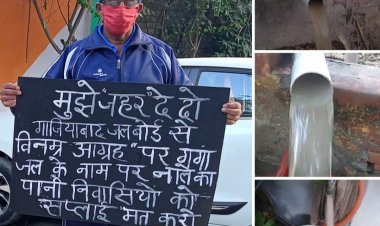 मुझे "जहर" दे दो
गाजियाबाद जलबोर्ड से
विनम्र आग्रह "पर गंगा
जल के नाम पर नाले का
पानी निवासियो को
"सप्लाई" मत करो